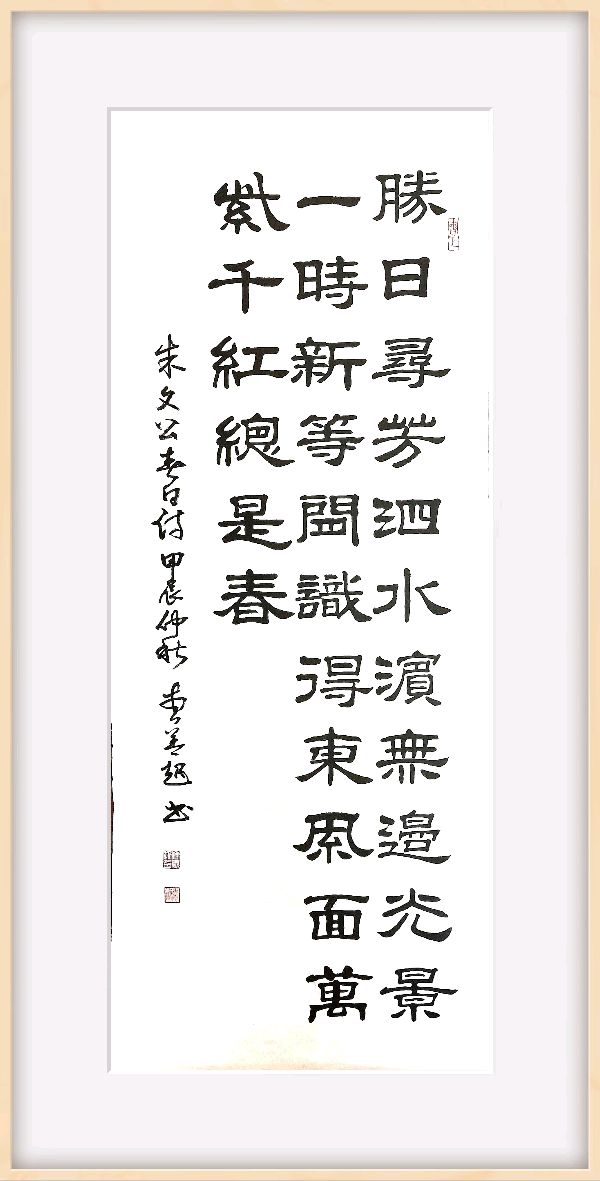 勝日尋芳泗水濱無邊光景
一時新等閒識得東風面萬
紫千紅總是春
朱文公春日詩 甲辰仲秋 善超书